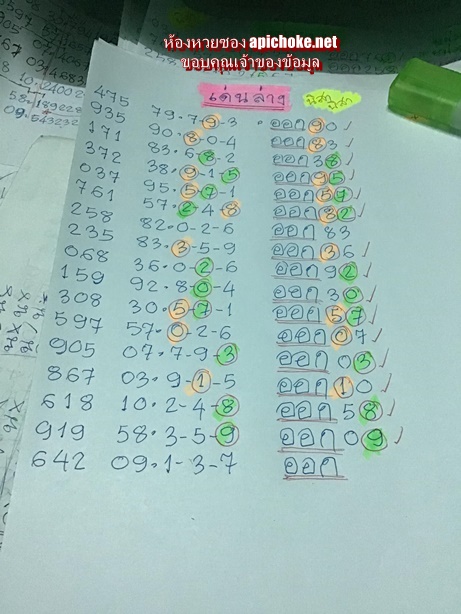 ห้องหวยซอง apichoke.net
ขอบคุณเจ้าของข้อมูล
เด่นล่าง
475
935 79.7-9-3 ออก 90 ✓
171 90.8-0-4 ออก 83 ✓
372 83.6-8-2 ออก 38 ✓
037 38.9-1-5 ออก 95 ✓
761 95.5-7-1 ออก 57 ✓
258 57.2-4-8 ออก 82 ✓
235 82.0-2-6 ออก 83
068 83.3-5-9 ออก 36 ✓
159 36.0-2-6 ออก 92 ✓
308 92.8-0-4 ออก 30 ✓
597 30.5-7-1 ออก 57 ✓
905 57.0-2-6 ออก 07 ✓
867 07.7-9-3 ออก 03 ✓
618 03.9-1-5 ออก 10 ✓
919 10.2-4-8 ออก 58 ✓
642 58.3-5-9 ออก 09 ✓
09.1-3-7 ออก